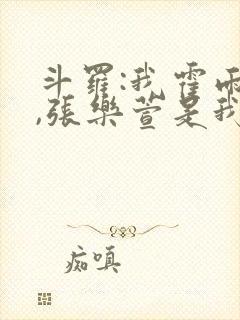 斗羅:我霍雨
,張樂萱是我
痴嗔